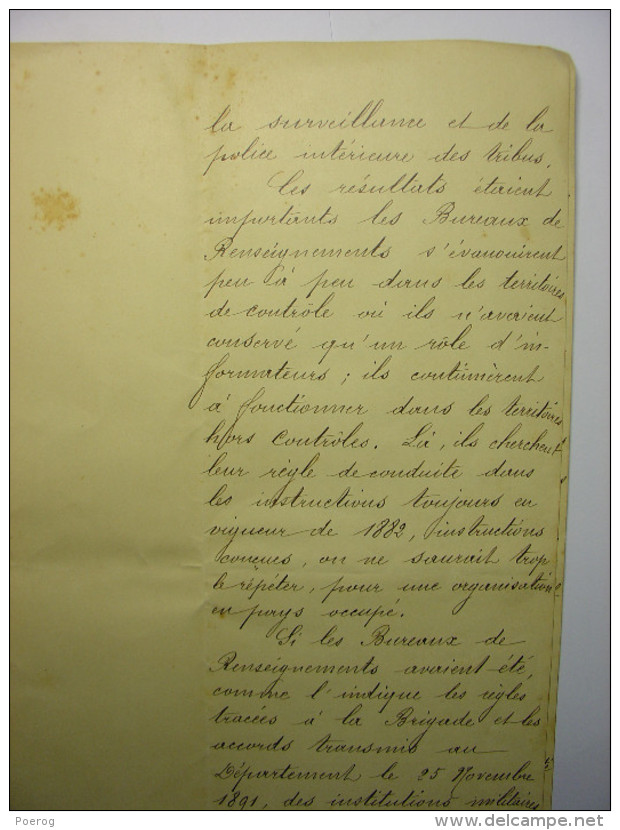 la surveillance et de la
police intérieure des tribus.
Les résultats étaient
importants les Bureaux de
Renseignements s'évanouirent
peu à peu dans les territoires
de contrôle où ils n'avaient
conservé qu'un rôle d'in-
formateurs ; ils continuèrent
à fonctionner dans les territoires
hors Contrôles. Là, ils cherchent
leur règle de conduite dans
les instructions toujours en
vigueur de 1882, instructions
conçues, on ne saurait trop
le répéter, pour une organisation
en pays occupé.
Si les Bureaux de
Renseignements avaient été,
comme l'indique les règles
tracées à la Brigade et les
accords transmis au
Département le 25 Novembre
1891, des institutions militaires
Poerog
delcampe.net